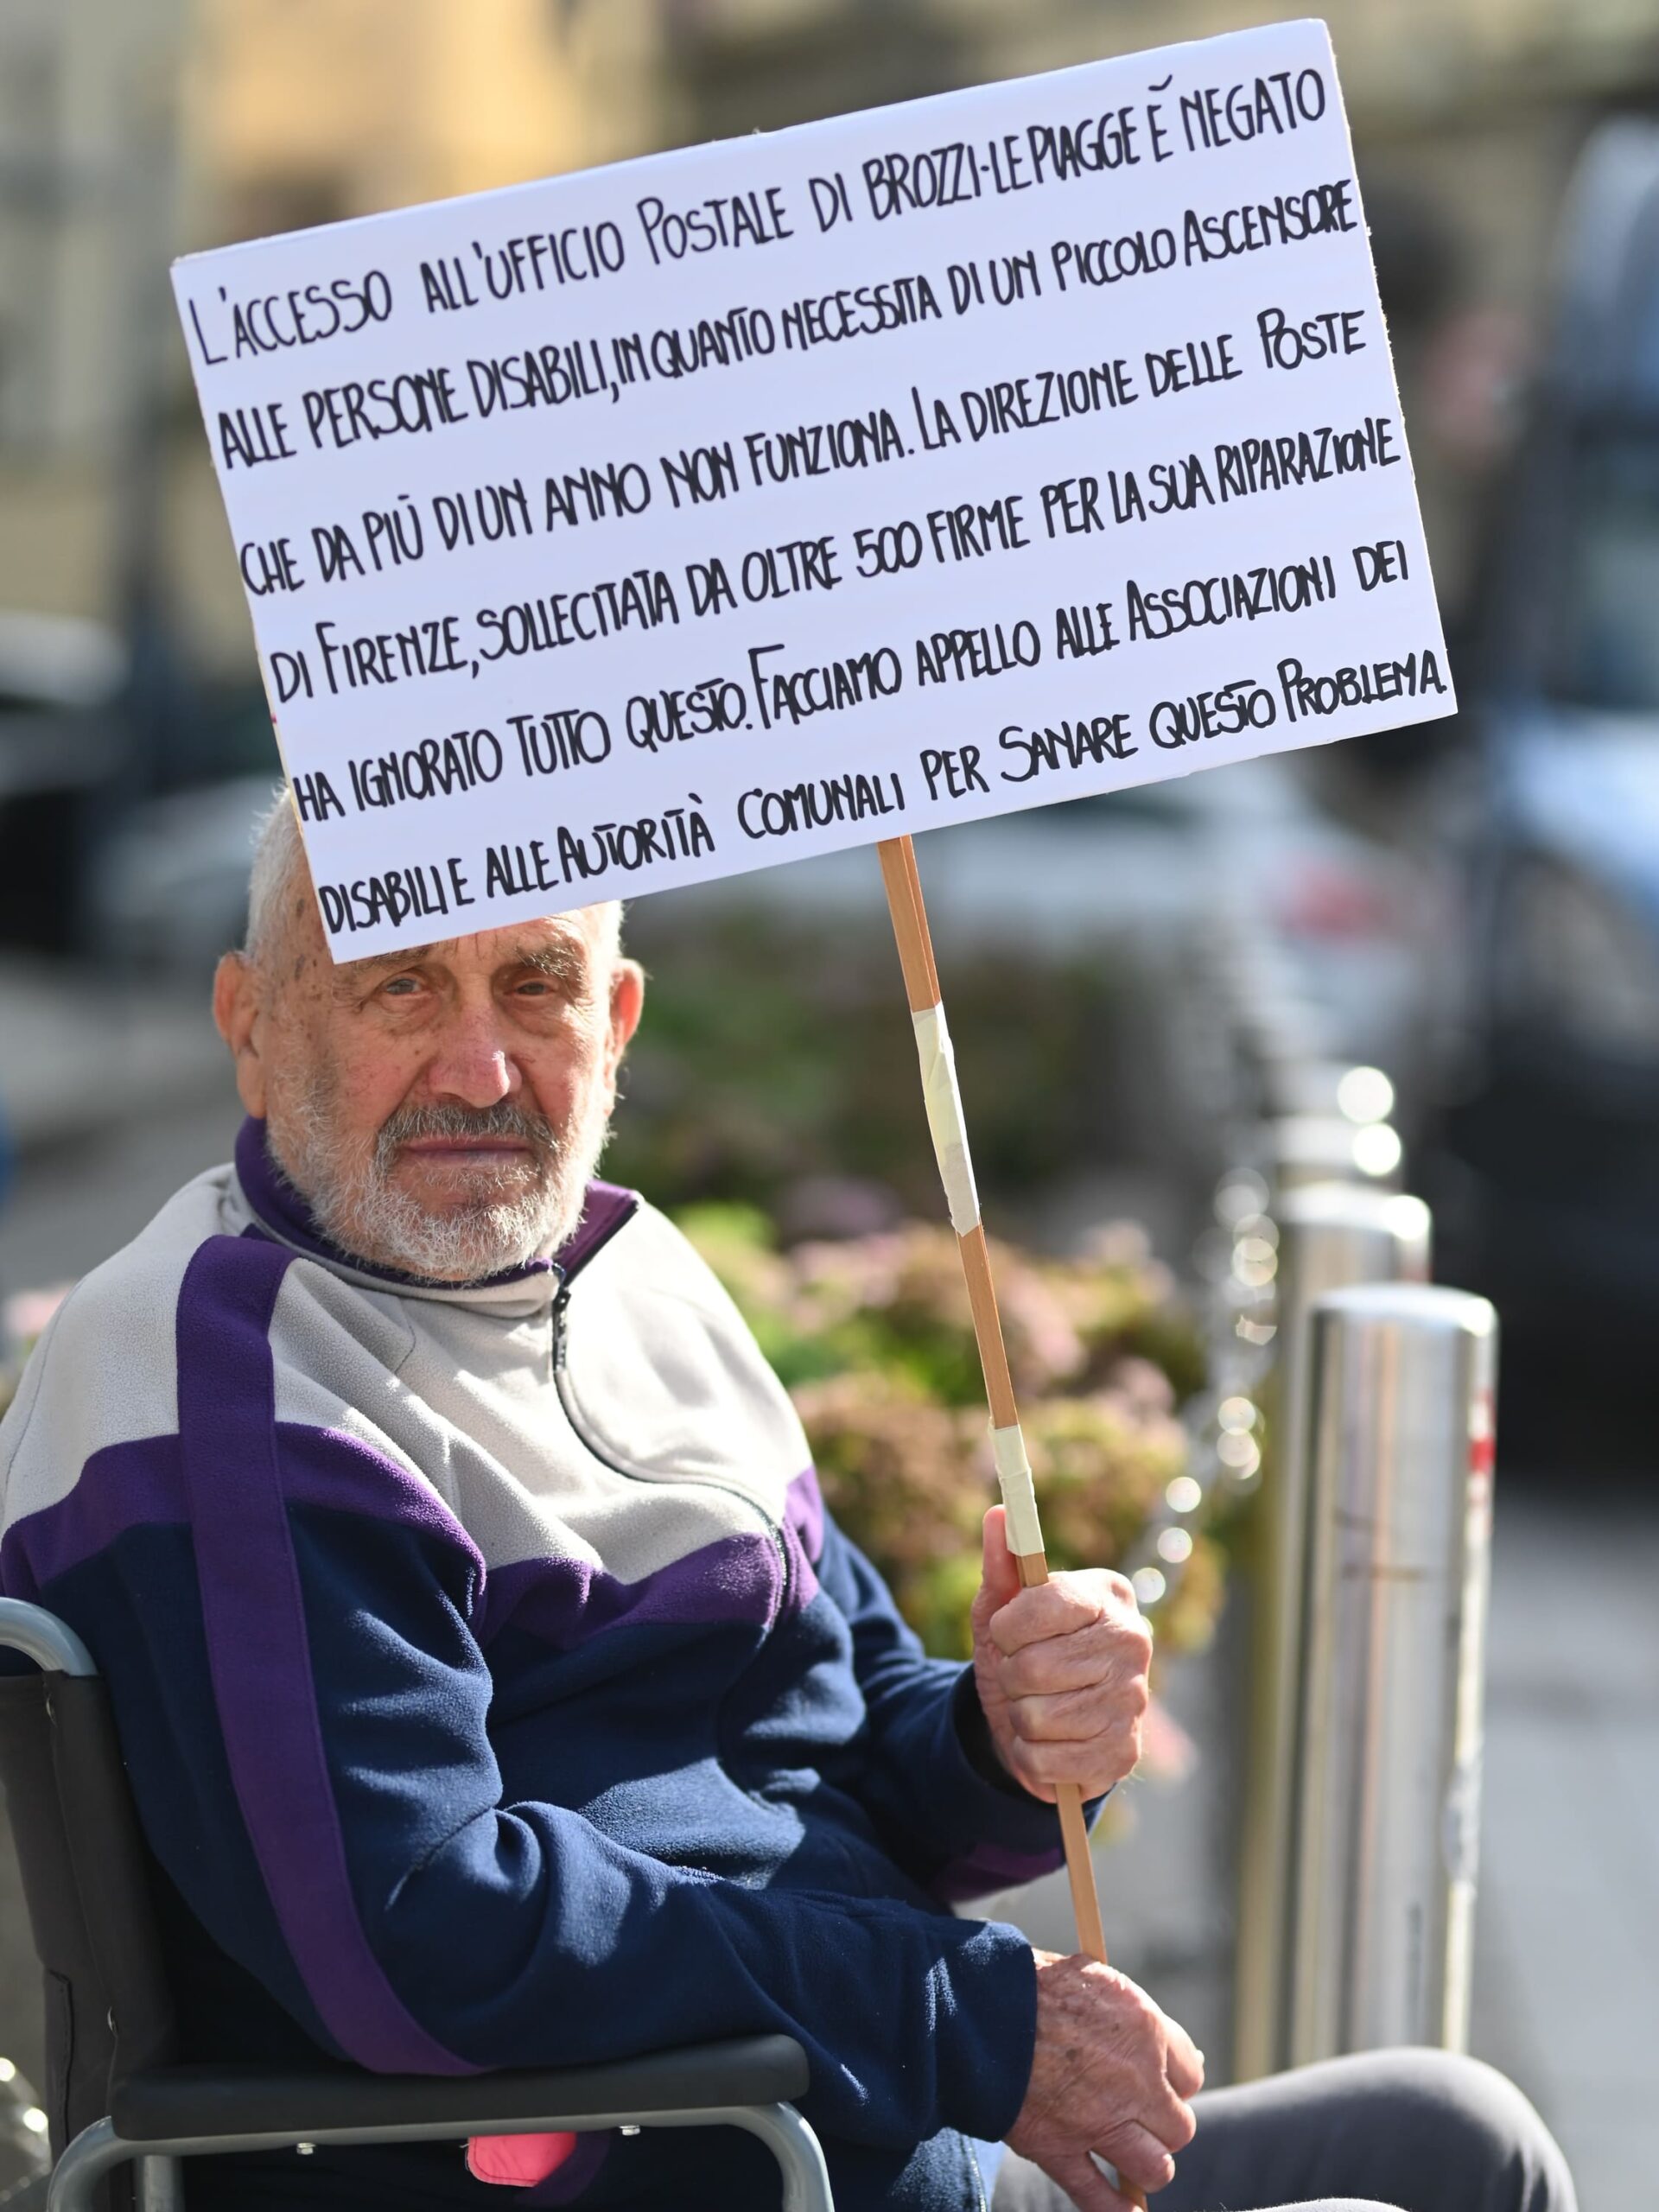 L'ACCESSO ALL'UFFICIO POSTALE DI BROZZI-LE PIAGGE È NEGATO
ALLE PERSONE DISABILI, IN QUANTO NECESSITA DI UN PICCOLO ASCENSORE
CHE DA PIÙ DI UN ANNO NON FUNZIONA. LA DIREZIONE DELLE POSTE
DI FIRENZE, SOLLECITATA DA OLTRE 500 FIRME PER LA SUA RIPARAZIONE
HA IGNORATO TUTTO QUESTO. FACCIAMO APPELLO ALLE ASSOCIAZIONI DEI
DISABILI E ALLE AUTORITÀ COMUNALI PER SANARE QUESTO PROBLEMA.